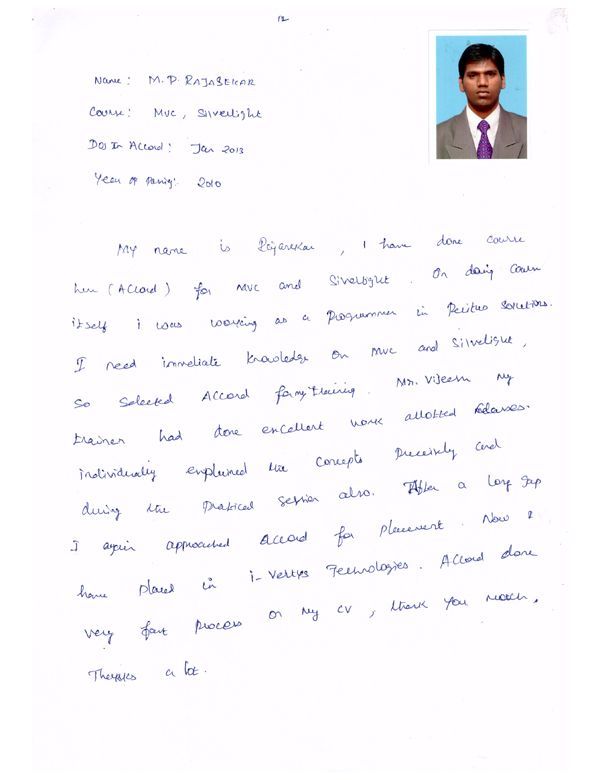 12
Name: M.P. RAJASEKAR
Course: MVC, Silverlight
DOJ In Accord: Jan 2013
Year of Passing: 2010
My name is Rajasekar, I have done course
here (Accord) for MVC and Silverlight. On doing course
itself i was working as a Programmer in Solutions.
I need immediate knowledge on MVC and Silverlight,
so selected Accord for my training. Mr. Vijeesh my
trainer had done excellent work allotted
individually explained the concepts precisely and
during the Pratical session also. After a long gap
I again approached Accord for placement. Now I
have placed in i-Vertys Technologies. Accord done
very fast process on my CV, thank you
Thanks a lot.